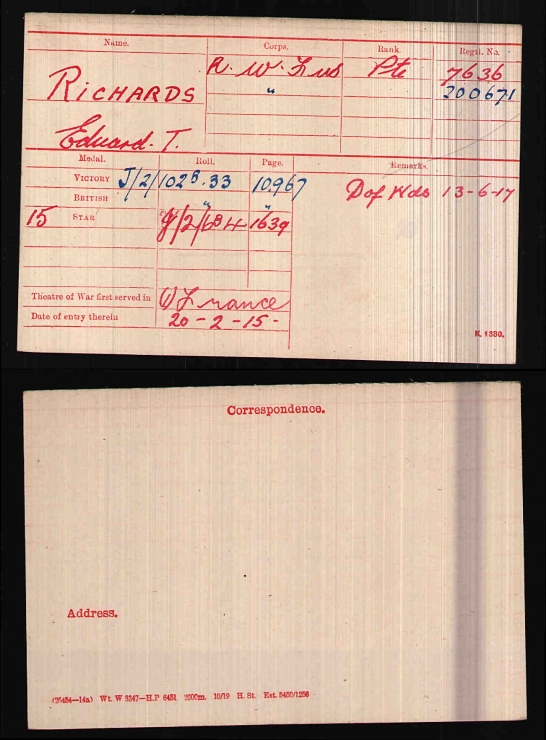 Name. Corps. Rank. Regtl. No.
RICHARDS R. W. Fus Pte 7636
" 200671
Edward. T.
Medal. Roll. Page. Remarks.
VICTORY J/2/102B.33 10967 D of Wds 13-6-17
BRITISH " "
15 STAR J/2/6B4 1639
Theatre of War first served in (1) France
Date of entry therein 20-2-15-
K. 1380.
Correspondence.
Address.
(25454—14a) Wt. W 3347—H.P 6451 2000m. 10/19 H. St. Est. 5400/1256